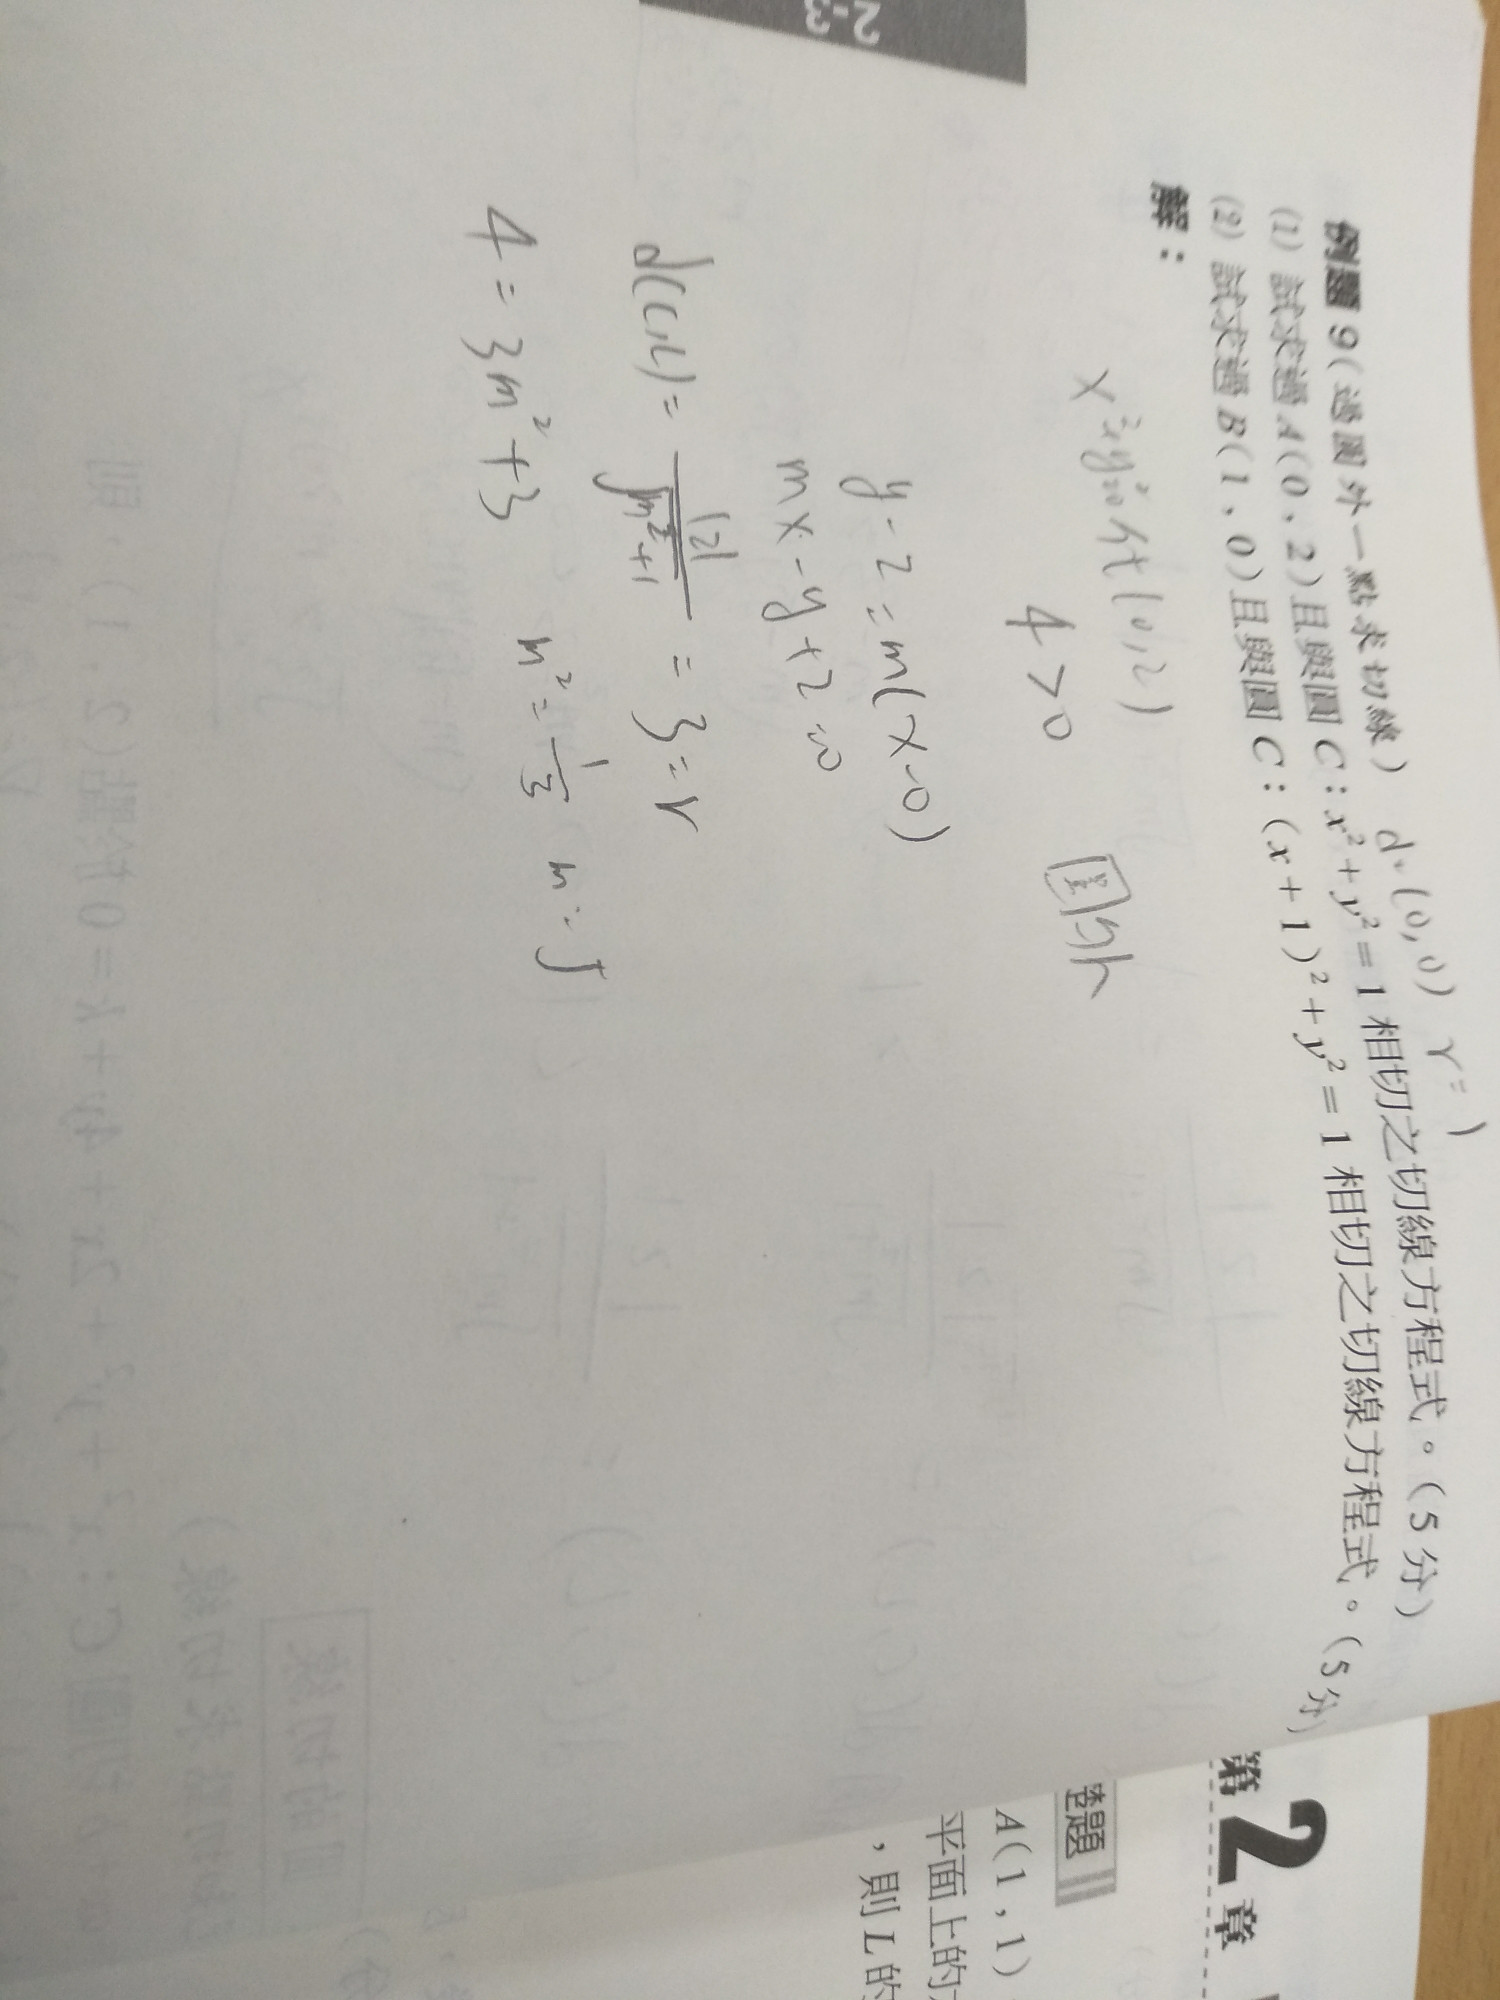 2-3
例題 9(過圓外一點求切線) d=(0,0) r=1
(1) 試求過 A(0, 2)且與圓 C:x²+y²=1 相切之切線方程式。(5 分)
(2) 試求過 B(1, 0)且與圓 C:(x+1)²+y²=1 相切之切線方程式。(5 分)
解:
4>0 圓外
y-2=m(x-0)
mx-y+2=0
d(C,L)= |2| / √m²+1 = 3=r
4=3m²+3 m²=1/3 m=√
第2章
整題
A(1,1)
平面上的
,則 L 的